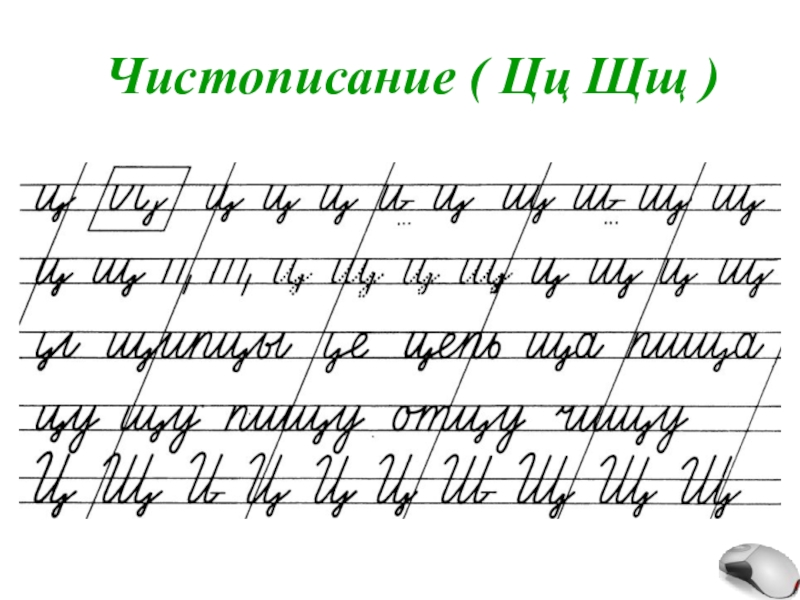 Чистописание ( Цц Щщ )
ц ц ц ц ц ц щ щ щ
ц щ ц щ ц щ ц щ ц щ
щипцы це цепь ща пища
цу щу пищу отцу чищу
Ц Щ Ц Ц Ц Щ Щ Щ